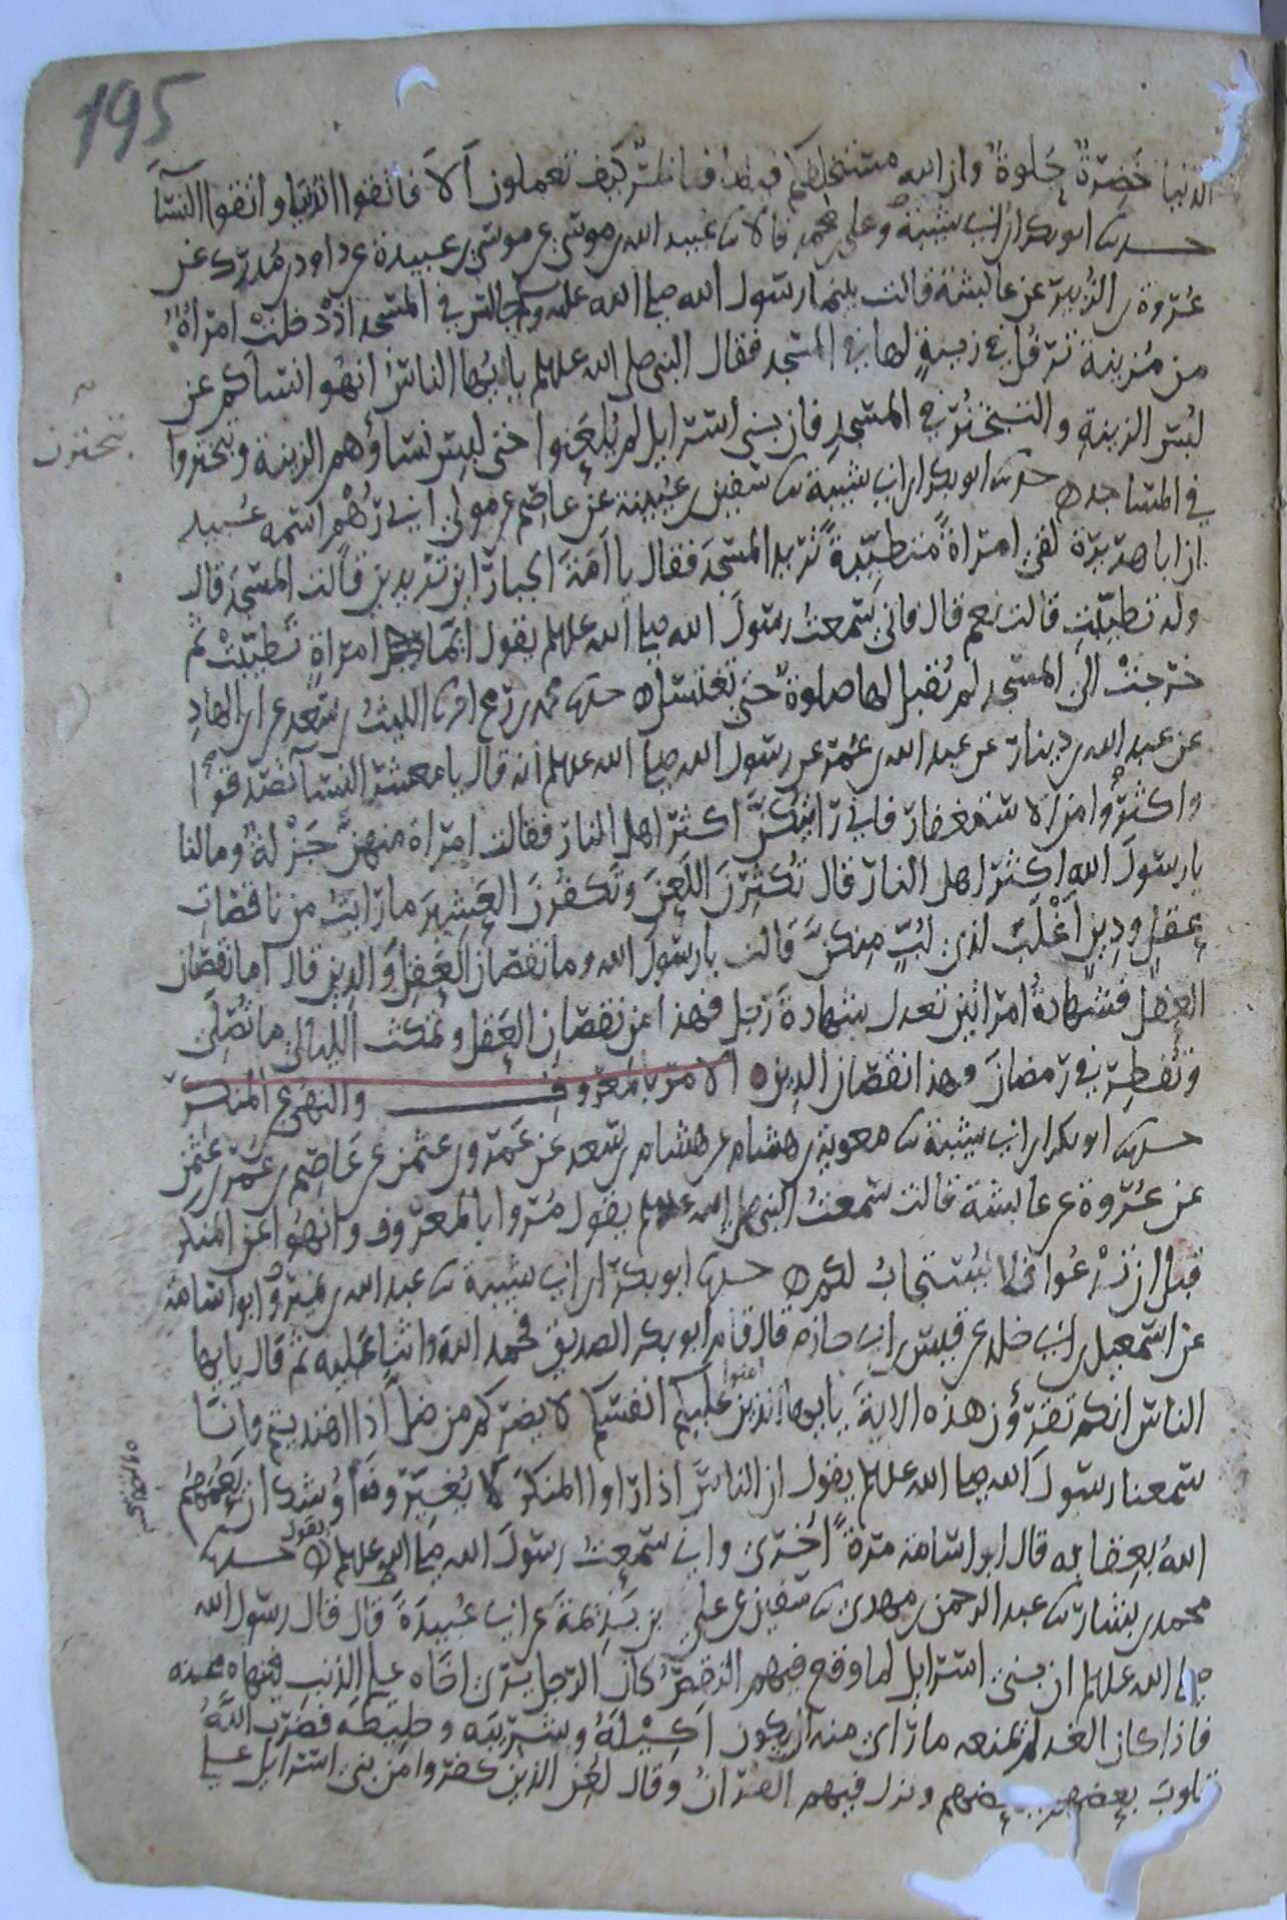 195
الدنيا خضرة حلوة وان الله مستخلفكم فيها فناظر كيف تعملون ألا فاتقوا الدنيا واتقوا النسآ
حدثنا ابو بكر ابن ابي شيبة وعلي بن محمد قالا ثنا عبيد الله بن موسى عن موسى بن عبيدة عن داود بن مدرك عن
عروة بن الزبير عن عائشة قالت بينما رسول الله صلى الله عليه وسلم جالس في المسجد اذ دخلت امرأة
من مزينة ترفل في زينة لها في المسجد فقال النبي صلى الله عليه وسلم يا ايها الناس انهوا نساكم عن
لبس الزينة والتبختر في المسجد فان بني اسرايل لم يلعنوا حتى لبس نساؤهم الزينة وتبختروا
تبخترن
في المساجد ه حدثنا ابو بكر ابن ابي شيبة ثنا سفين بن عيينة عن عاصم عن مولى ابي رهم اسمه عبيد
ان ابا هريرة لقي امراة متطيبة تريد المسجد فقال يا امة الجبار اين تريدين قالت المسجد قال
وله تطيبت قالت نعم قال فاني سمعت رسول الله صلى الله عليه وسلم يقول ايما امراة تطيبت ثم
خرجت الى المسجد لم تقبل لها صلوة حتى تغتسل ه حدثنا محمد بن رمح انا الليث بن سعد عن ابن الهاد
عن عبد الله بن دينار عن عبد الله بن عمر عن رسول الله صلى الله عليه وسلم انه قال يا معشر النسا تصدقن
واكثروا من الاستغفار فاني رايتكن اكثر اهل النار فقالت امراة منهن جزلة وما لنا
يا رسول الله اكثر اهل النار قال تكثرن اللعن وتكفرن العشير ما رايت من ناقصات
عقل ودين اغلب لذي لب منكن قالت يا رسول الله وما نقصان العقل والدين قال اما نقصان
العقل فشهادة امراتين تعدل شهادة رجل فهذا من نقصان العقل وتمكث الليالي ما تصلي
وتفطر في رمضان وهذا نقصان الدين ه الامر بالمعروف والنهي عن المنكر
حدثنا ابو بكر ابن ابي شيبة ثنا معوية بن هشام عن هشام بن سعد عن عمرو بن عثمن عن عاصم بن عمر بن عثمن
عن عروة عن عائشة قالت سمعت النبي صلى الله عليه وسلم يقول مروا بالمعروف وانهوا عن المنكر
قبل ان تدعوا فلا يستجاب لكم ه حدثنا ابو بكر ابن ابي شيبة ثنا عبد الله بن نمير وابو اسامة
عن اسمعيل بن ابي خلد عن قيس بن ابي حازم قال قام ابو بكر الصديق فحمد الله واثنا عليه ثم قال يا ايها
الناس انكم تقرؤن هذه الاية يا ايها الذين امنوا عليكم انفسكم لا يضركم من ضل اذا اهتديتم وانا
سمعنا رسول الله صلى الله عليه وسلم يقول ان الناس اذا راوا المنكر لا يغيرونه اوشك ان يعمهم
الله بعقابه قال ابو اسامة مرة اخرى واني سمعت رسول الله صلى الله عليه وسلم يقول ه حدثنا
محمد بن بشار ثنا عبد الرحمن بن مهدي ثنا سفين عن علي بن بذيمة عن ابي عبيدة قال قال رسول الله
صلى الله عليه وسلم ان بني اسرايل لما وقع فيهم النقص كان الرجل يرى اخاه على الذنب فينهاه عنه
فاذا كان الغد لم يمنعه ما راى منه ان يكون اكيله وشريبه وخليطه فضرب الله
قلوب بعضهم ببعضهم ونزل فيهم القران وقال لعن الذين كفروا من بني اسرايل على